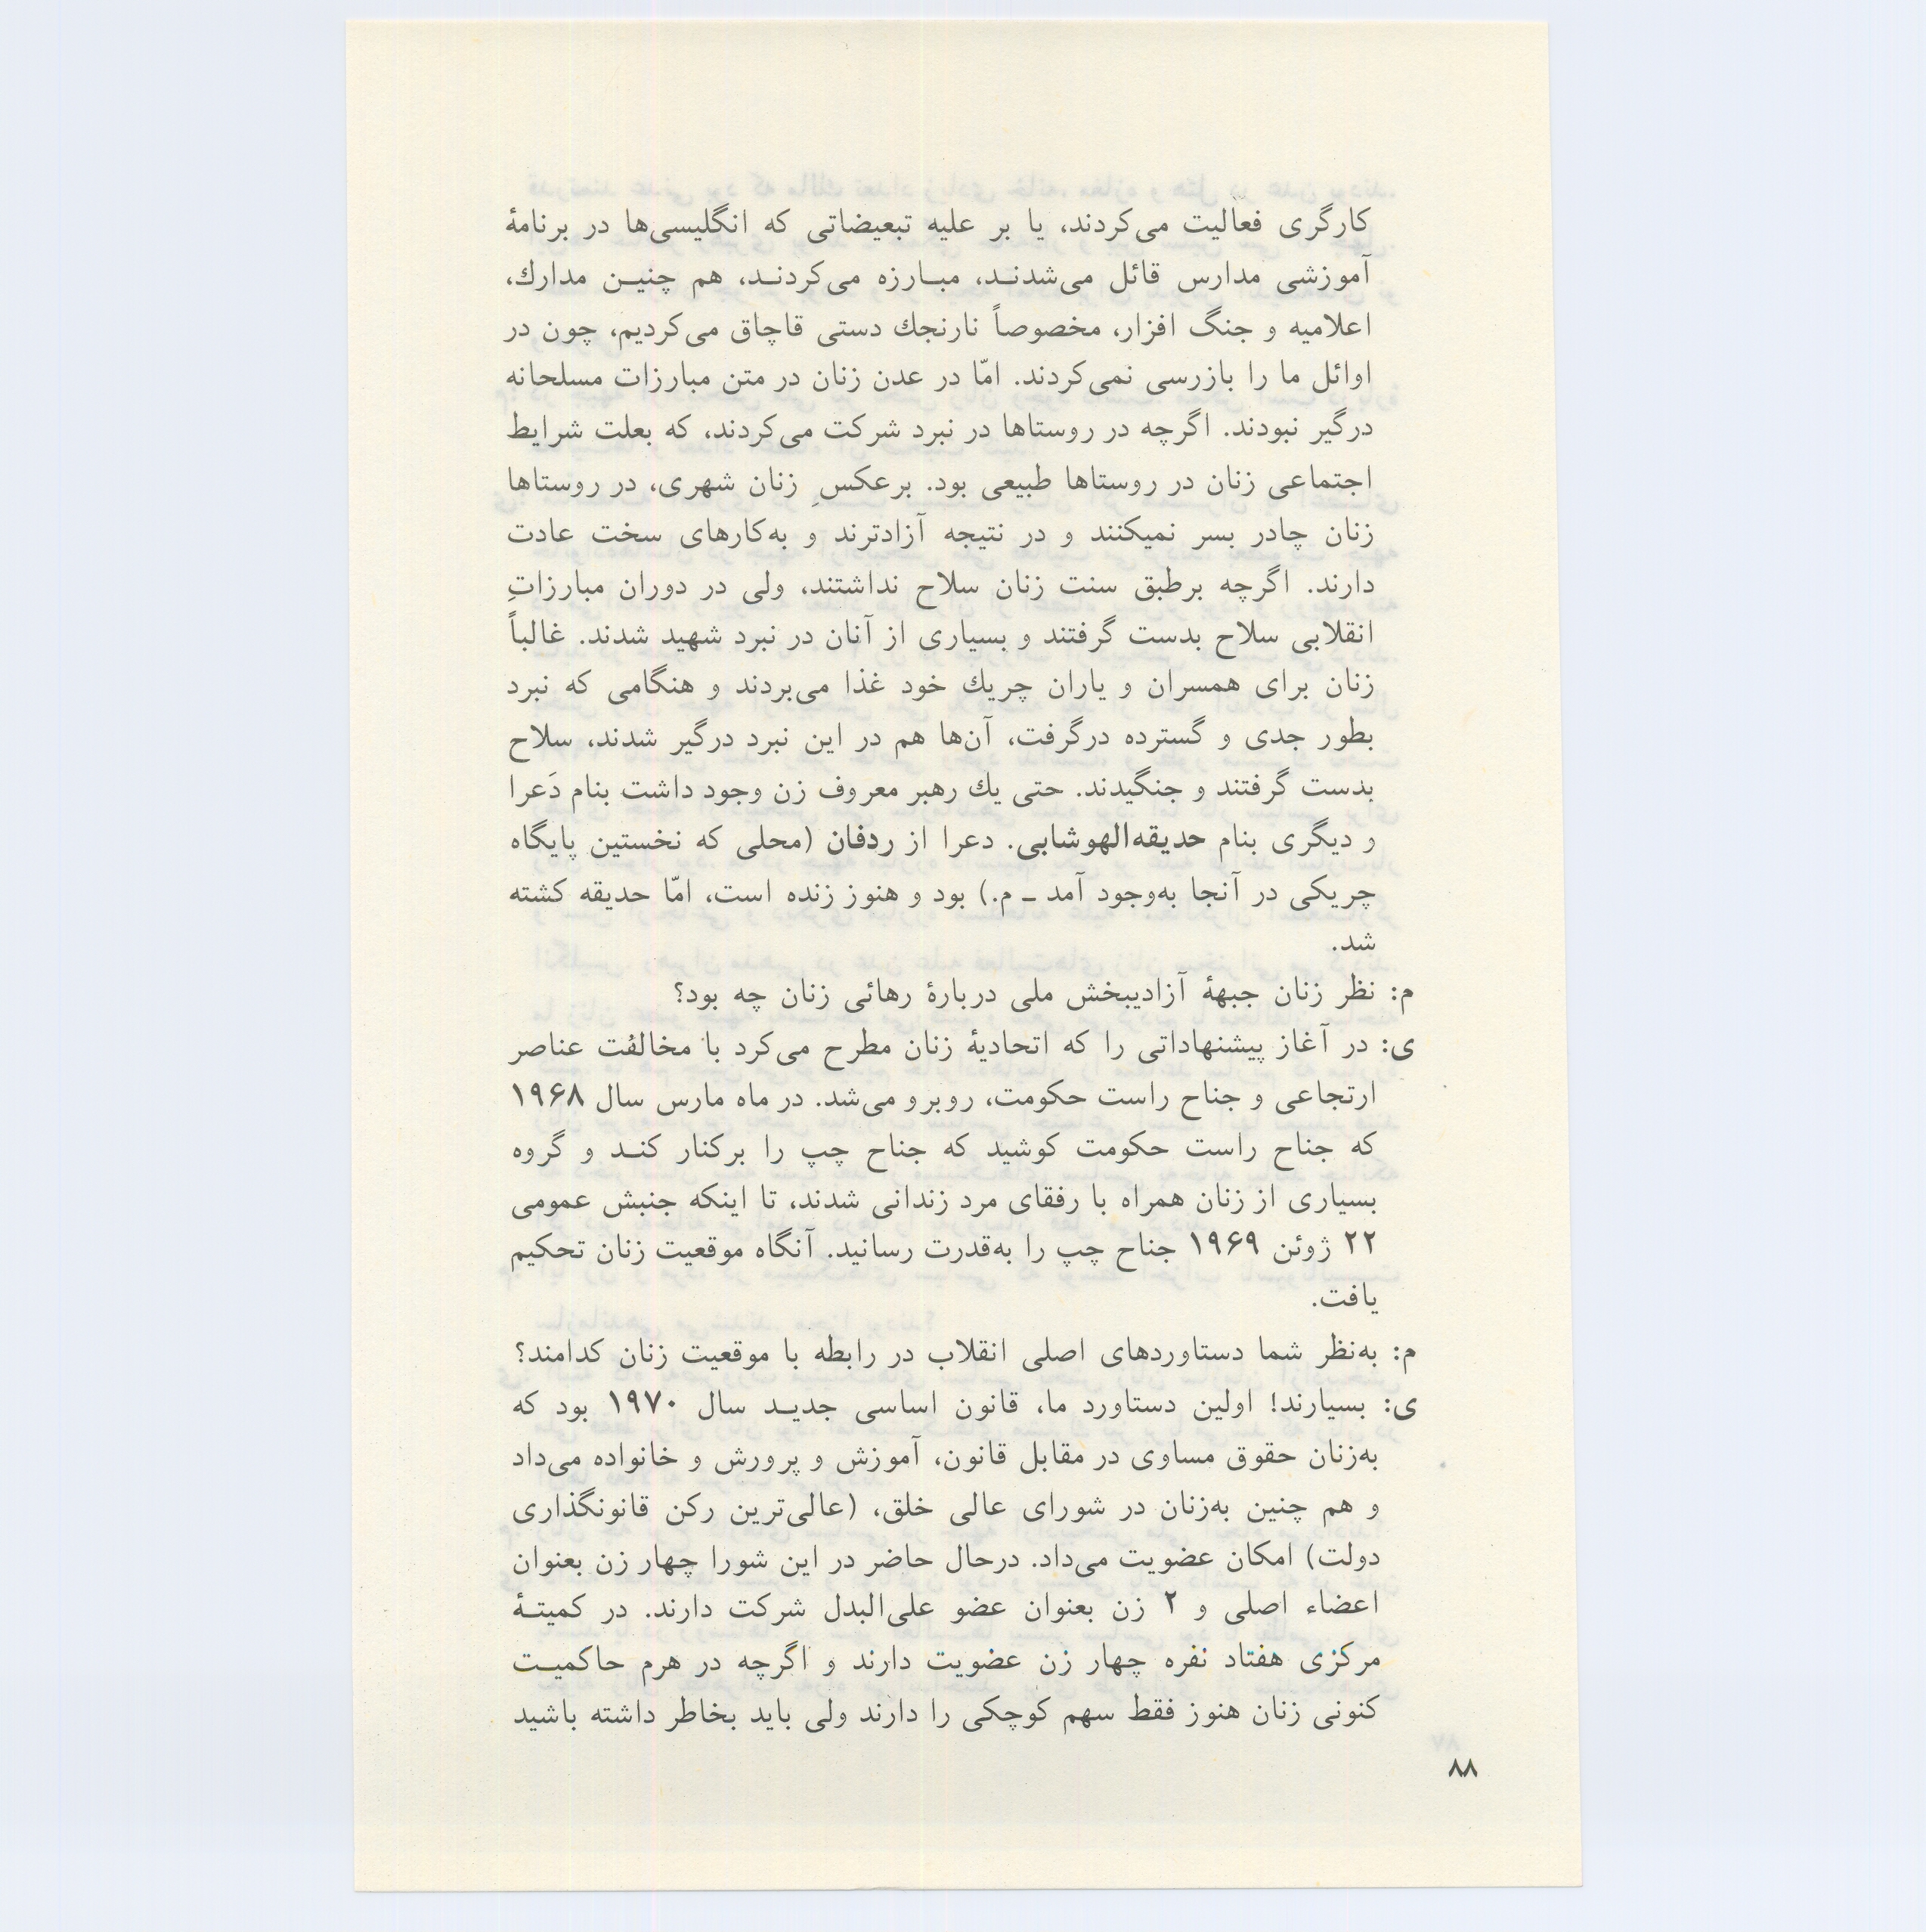 کارگری فعالیت می‌کردند، یا بر علیه تبعیضاتی که انگلیسی‌ها در برنامهٔ
آموزشی مدارس قائل می‌شدنـد، مبـارزه می‌کردنـد، هم چنیـن مدارك،
اعلامیه و جنگ افزار، مخصوصاً نارنجك دستی قاچاق می‌کردیم، چون در
اوائل ما را بازرسی نمی‌کردند. امّا در عدن زنان در متن مبارزات مسلحانه
درگیر نبودند. اگرچه در روستاها در نبرد شرکت می‌کردند، که بعلت شرایط
اجتماعی زنان در روستاها طبیعی بود. برعکسِ زنان شهری، در روستاها
زنان چادر بسر نمیکنند و در نتیجه آزادترند و به‌کارهای سخت عادت
دارند. اگرچه برطبق سنت زنان سلاح نداشتند، ولی در دوران مبارزاتِ
انقلابی سلاح بدست گرفتند و بسیاری از آنان در نبرد شهید شدند. غالباً
زنان برای همسران و یاران چریك خود غذا می‌بردند و هنگامی که نبرد
بطور جدی و گسترده درگرفت، آن‌ها هم در این نبرد درگیر شدند، سلاح
بدست گرفتند و جنگیدند. حتی یك رهبر معروف زن وجود داشت بنام دَعرا
و دیگری بنام حدیقه‌الهوشابی. دعرا از ردفان (محلی که نخستین پایگاه
چریکی در آنجا به‌وجود آمد ـ م.) بود و هنوز زنده است، امّا حدیقه کشته
شد.
م: نظر زنان جبههٔ آزادیبخش ملی دربارهٔ رهائی زنان چه بود؟
ی: در آغاز پیشنهاداتی را که اتحادیهٔ زنان مطرح می‌کرد با مخالفت عناصر
ارتجاعی و جناح راست حکومت، روبرو می‌شد. در ماه مارس سال ۱۹۶۸
که جناح راست حکومت کوشید که جناح چپ را برکنار کنـد و گروه
بسیاری از زنان همراه با رفقای مرد زندانی شدند، تا اینکه جنبش عمومی
۲۲ ژوئن ۱۹۶۹ جناح چپ را به‌قدرت رسانید. آنگاه موقعیت زنان تحکیم
یافت.
م: به‌نظر شما دستاوردهای اصلی انقلاب در رابطه با موقعیت زنان کدامند؟
ی: بسیارند! اولین دستاورد ما، قانون اساسی جدیـد سال ۱۹۷۰ بود که
به‌زنان حقوق مساوی در مقابل قانون، آموزش و پرورش و خانواده می‌داد
و هم چنین به‌زنان در شورای عالی خلق، (عالی‌ترین رکن قانونگذاری
دولت) امکان عضویت می‌داد. درحال حاضر در این شورا چهار زن بعنوان
اعضاء اصلی و ۲ زن بعنوان عضو علی‌البدل شرکت دارند. در کمیتـهٔ
مرکزی هفتاد نفره چهار زن عضویت دارند و اگرچه در هرم حاکمیـت
کنونی زنان هنوز فقط سهم کوچکی را دارند ولی باید بخاطر داشته باشید
۸۸